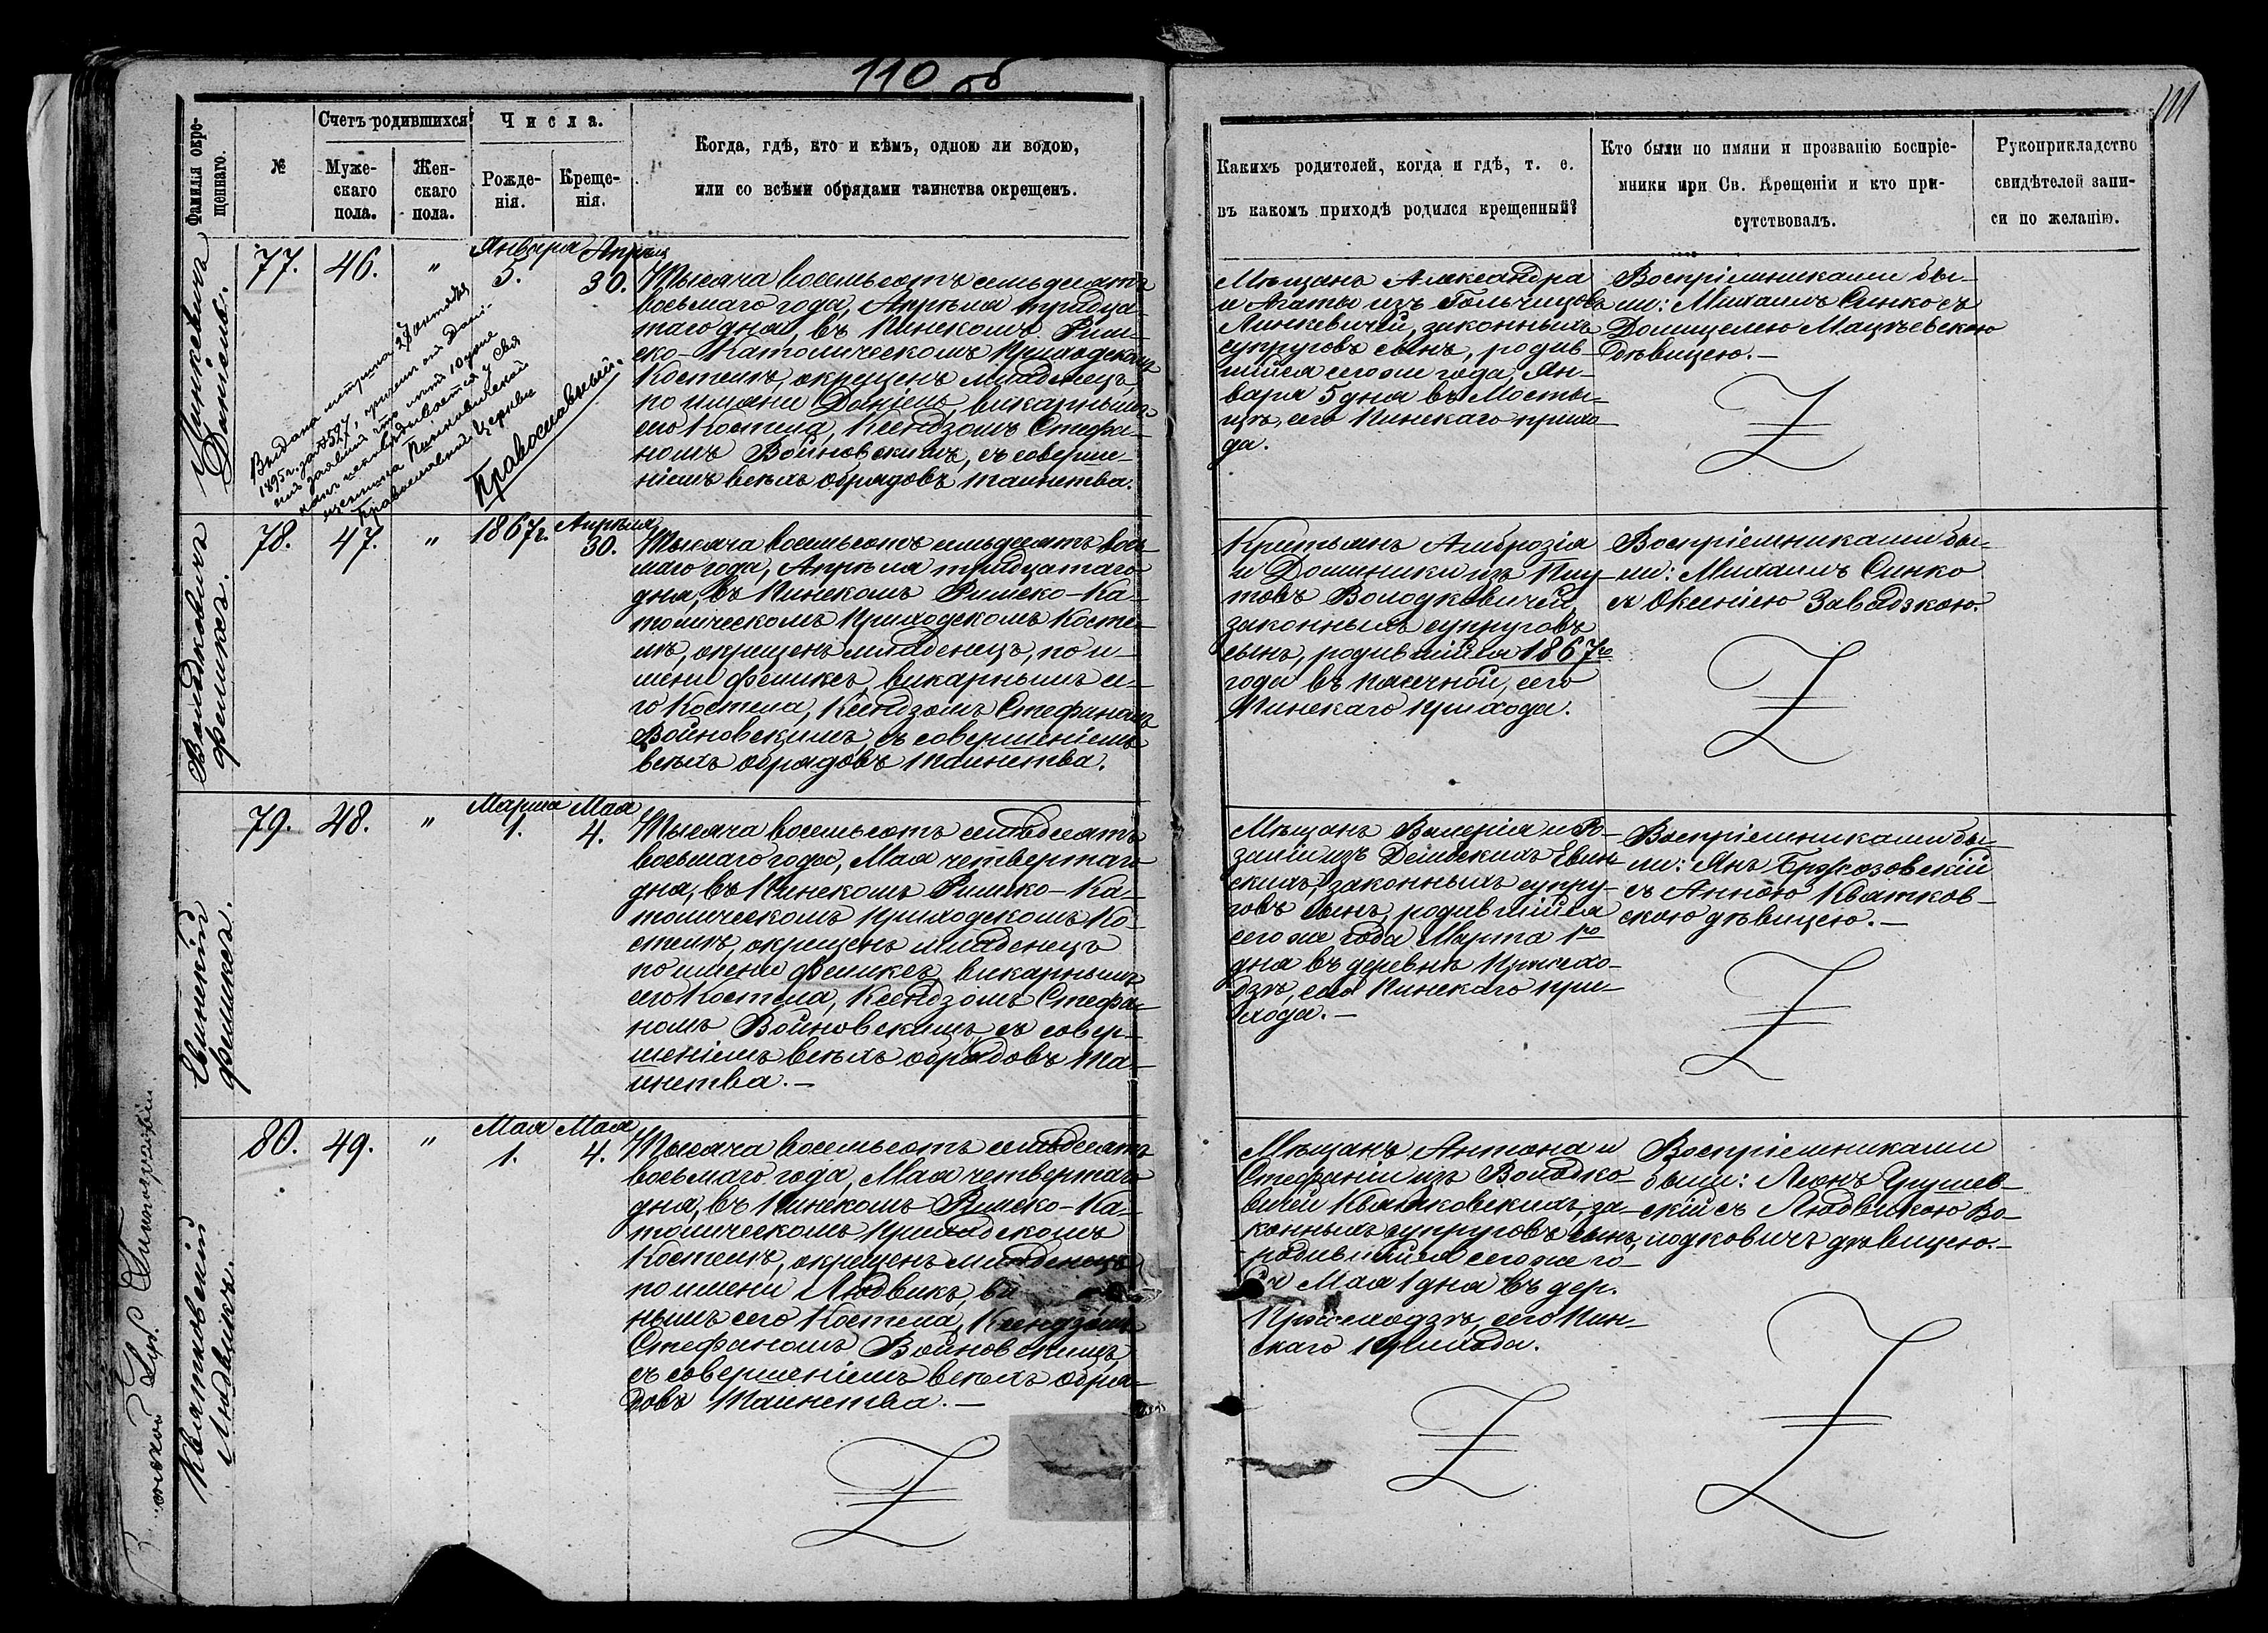 110 об
111
Фамилія окре-
щеннаго.
№
Счетъ родившихся
Муже-
скаго
пола.
Жен-
скаго
пола.
Числа.
Рожде-
нія.
Креще-
нія.
Когда, гдѣ, кто и кѣмъ, одною ли водою,
или со всѣми обрядами таинства окрещенъ.
Какихъ родителей, когда и гдѣ, т. е.
въ какомъ приходѣ родился крещенный?
Кто были по имяни и прозванію воспріе-
мники при Св. Крещеніи и кто при-
сутствовалъ.
Рукоприкладство
свидѣтелей запи-
си по желанію.
Линкевичъ
Даніель.
77.
46.
"
Января
5.
Апрѣля
30.
Выдана метрика 28 октября
1895 г. за № 527, причемъ Дані-
илъ заявилъ что
какъ
Православной Церкви
Православный.
Тысяча восемьсотъ семьдесятъ
восьмаго года, Апрѣля тридца-
таго дня, въ Пинскомъ Рим-
ско-Католическомъ Приходскомъ
Костелѣ, окрещенъ младенецъ,
по имени Даніель, викарнымъ
сего Костела, Ксендзомъ Стефа-
номъ Войновскимъ, съ соверше-
ніемъ всѣхъ обрядовъ таинства.
Мѣщанъ Александра
и Агаты изъ Гольчицовъ
Линкевичей, законныхъ
супруговъ сынъ, родив-
шійся сего же года, Ян-
варя 5 дня въ Мосты-
цѣ, сего Пинскаго прихо-
да.
Воспріемниками бы-
ли: Михаилъ Синко съ
Домицелею Мацкевскою
дѣвицею.—
Володковичъ
Феликсъ.
78.
47.
"
1867 г.
Апрѣля
30.
Тысяча восемьсотъ семьдесятъ вось-
маго года, Апрѣля тридцатаго
дня, въ Пинскомъ Римско-Ка-
толическомъ Приходскомъ Косте-
лѣ, окрещенъ младенецъ, по и-
мени Феликсъ, викарнымъ се-
го Костела, Ксендзомъ Стефаномъ
Войновскимъ, съ совершеніемъ
всѣхъ обрядовъ таинства.
Крестьянъ Амброзія
и Доминики изъ Плу-
товъ Володковичей,
законныхъ супруговъ
сынъ, родившійся 1867го
года въ Пасѣчной, сего
Пинскаго прихода.
Воспріемниками бы-
ли: Михаилъ Синко
съ Оксеніею Завадзкою.
Евинскій
Феликсъ.
79.
48.
"
Марта
1.
Мая
4.
Тысяча восемьсотъ семьдесятъ
восьмаго года, Мая четвертаго
дня, въ Пинскомъ Римско-Ка-
толическомъ Приходскомъ Ко-
стелѣ, окрещенъ младенецъ
по имени Феликсъ викарнымъ
сего Костела, Ксендзомъ Стефа-
номъ Войновскимъ, съ совер-
шеніемъ всѣхъ обрядовъ та-
инства.—
Мѣщанъ Валерія и Ро-
заліи изъ Деміскихъ Евин-
скихъ, законныхъ супру-
говъ сынъ, родившійся
сего же года Марта 1го
дня въ деревнѣ
сего Пинскаго при-
хода.—
Воспріемниками бы-
ли: Янъ Бржозовскій
съ Анною Квятков-
скою дѣвицею.—
Квятковскій
Людвикъ.
80.
49.
"
Мая
1.
Мая
4.
Тысяча восемьсотъ семьдесятъ
восьмаго года, Мая четвертаго
дня, въ Пинскомъ Римско-Ка-
толическомъ Приходскомъ
Костелѣ, окрещенъ младенецъ
по имени Людвикъ, ви
нымъ сего Костела, Ксендзомъ
Стефаномъ Войновскимъ,
съ совершеніемъ всѣхъ обря-
довъ таинства.—
Мѣщанъ Антона и
Стефаніи изъ Володко-
вичей Квятковскихъ, за-
конныхъ супруговъ сынъ,
родившійся сего же го-
да Мая 1 дня въ дер.
сего Пин-
скаго прихода.
Воспріемниками
были: Леонъ Грушев-
скій съ Людвикою Во-
лодковичъ дѣвицею.—